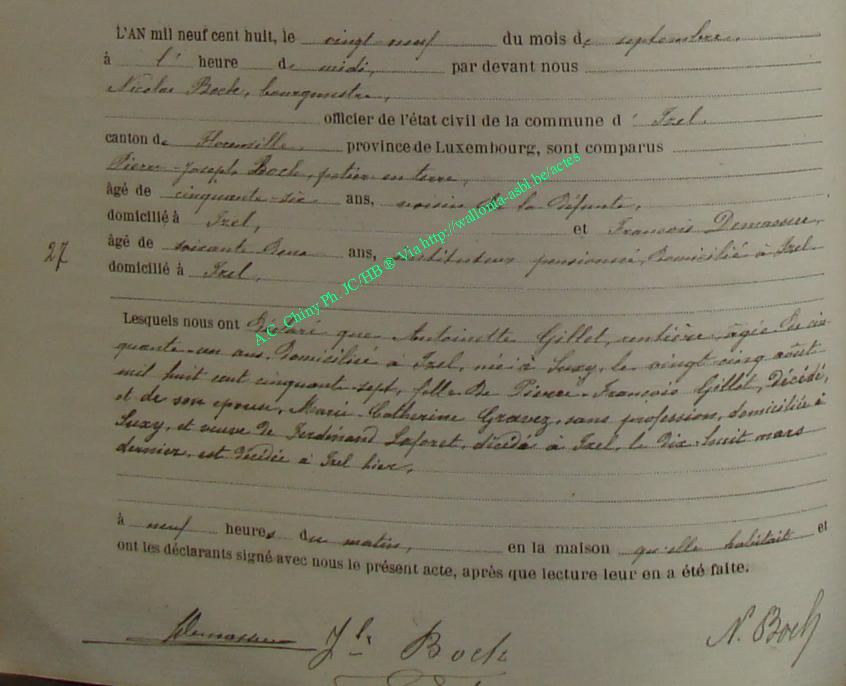 L'AN mil neuf cent huit, le vingt-neuf du mois de septembre,
à l' heure de midi, par devant nous
Nicolas Boch, bourgmestre,
officier de l'état civil de la commune d' Izel,
canton de Florenville, province de Luxembourg, sont comparus
Pierre-Joseph Boch, potier en terre,
âgé de cinquante-six ans, voisin de la défunte,
domicilié à Izel, et François Demasseur,
27
âgé de soixante deux ans, instituteur pensionné, domicilié à Izel
domicilié à Izel,
Lesquels nous ont déclaré que Antoinette Gillet, rentière, âgée de cin-
quante-un ans, domiciliée à Izel, née à Suxy, le vingt cinq août
mil huit cent cinquante-sept, fille de Pierre-François Gillet, décédé,
et de son épouse, Marie-Catherine Gravez, sans profession, domiciliée à
Suxy, et veuve de Ferdinand Laforet, décédé à Izel, le dix-huit mars
dernier, est décédée à Izel hier,
à neuf heures du matin, en la maison qu'elle habitait et
ont les déclarants signé avec nous le présent acte, après que lecture leur en a été faite.
Demasseur Jh Boch N. Boch
A.C. Chiny Ph. JC/HB ® Via http://wallonia-asbl.be/actes